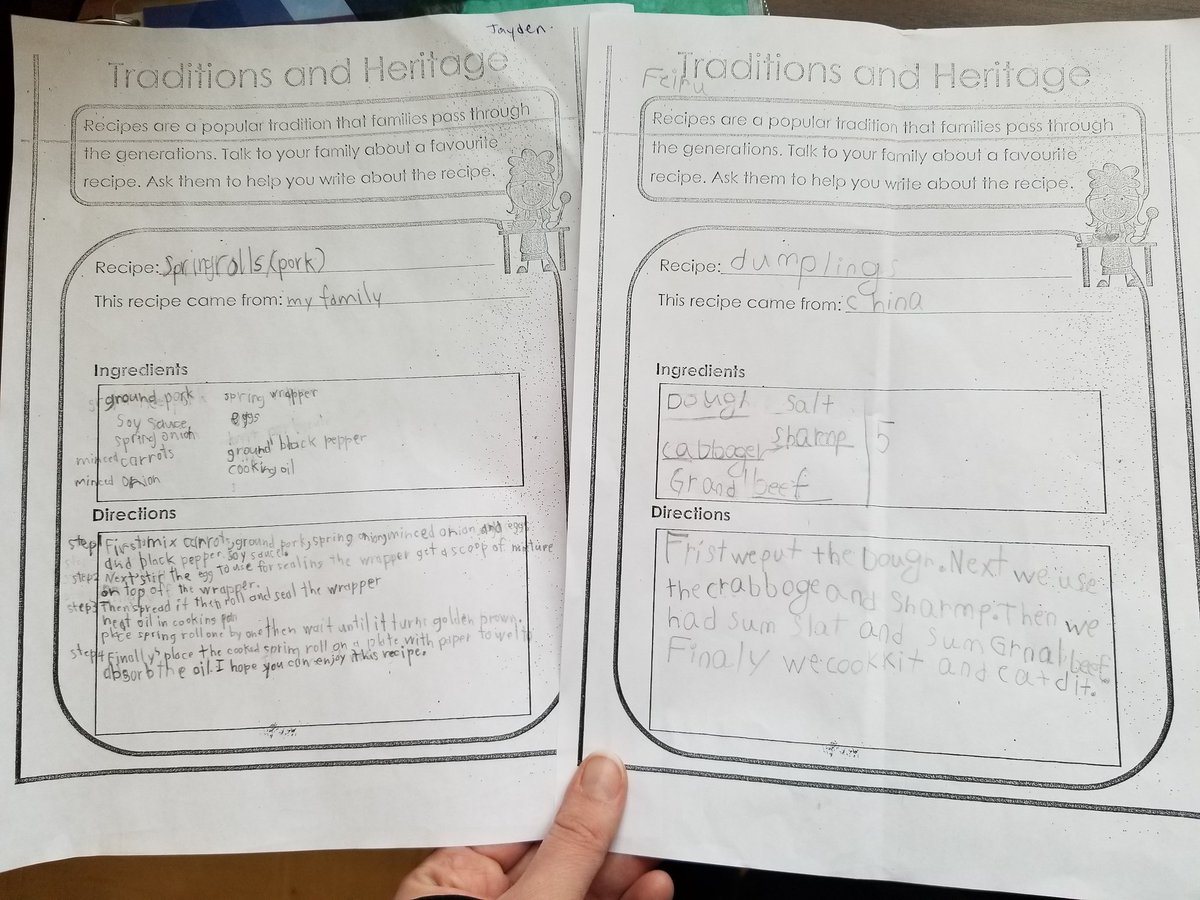 Jayden.
Traditions and Heritage
Recipes are a popular tradition that families pass through
the generations. Talk to your family about a favourite
recipe. Ask them to help you write about the recipe.
Recipe: Springrolls (pork)
This recipe came from: my family
Ingredients
ground pork spring wrapper
Soy Sauce, eggs
spring onion
minced carrots ground black pepper
minced onion cooking oil
Directions
step1 First: mix carrots, ground pork, spring onion, minced onion and eggs
and black pepper, soy sauce.
step2 Next stir the egg to use for sealing the wrapper get a scoop of mixture
on top off the wrapper.
step3 Then spread it then roll and seal the wrapper
heat oil in cooking pan
place spring roll one by one then wait until it turns golden prown.
step4 Finally place the cooked spring roll on a plate with paper towel to
absorb the oil. I hope you can enjoy this recipe.
Feihu
Traditions and Heritage
Recipes are a popular tradition that families pass through
the generations. Talk to your family about a favourite
recipe. Ask them to help you write about the recipe.
Recipe: dumplings
This recipe came from: china
Ingredients
Dough salt
cabboger sharmp 5
Grand beef
Directions
Frist we put the Dough. Next we use
the crabboge and sharmp. Then we
had sum slat and sum Grnal beef.
Finaly we cookkit and eatdit.